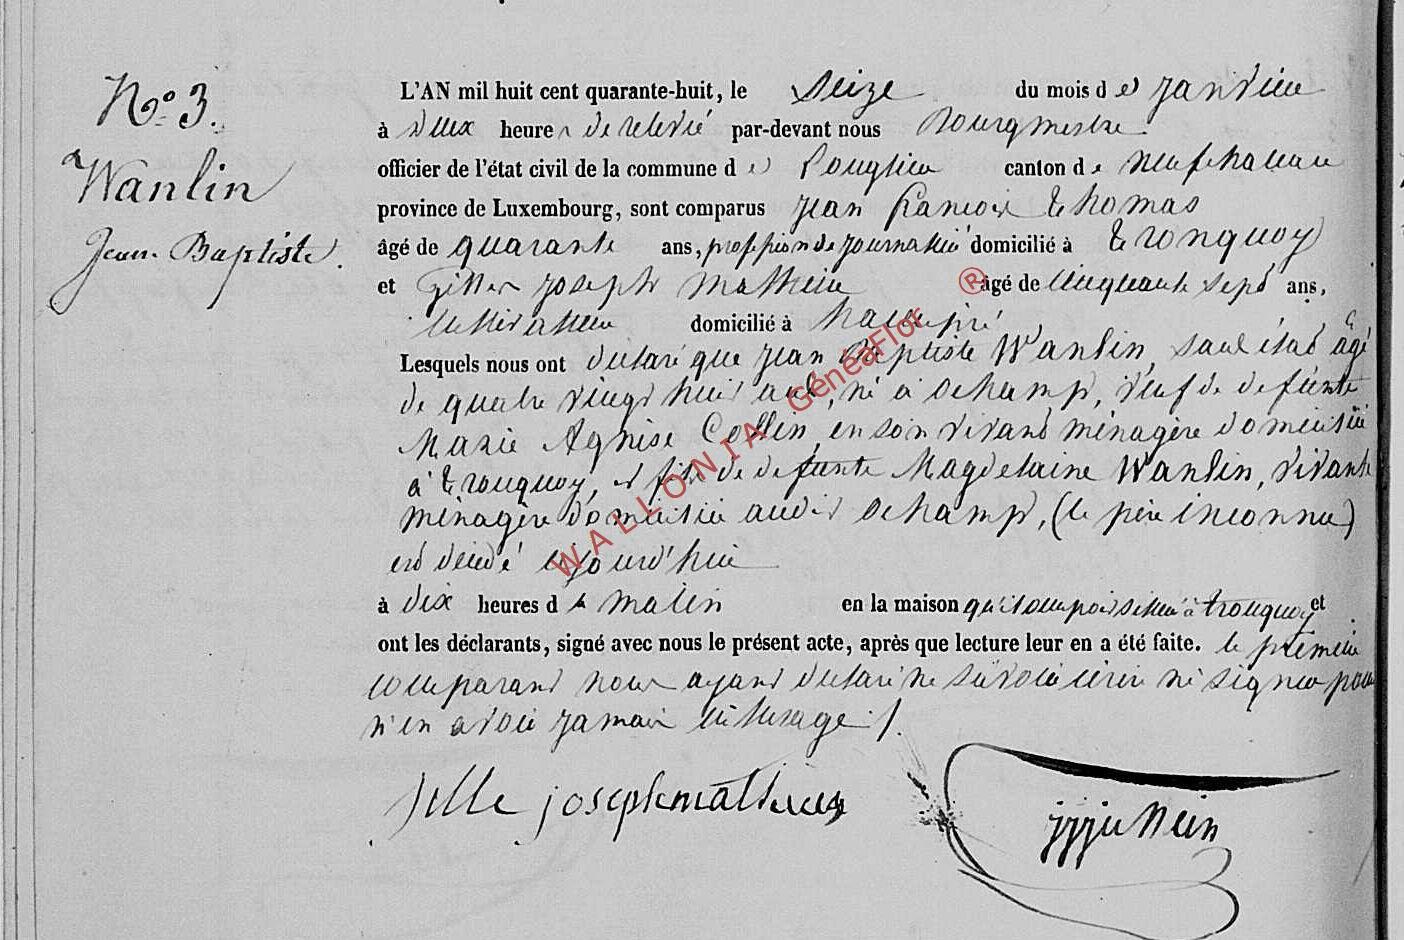 N° 3.
Wanlin
Jean Baptiste.
L'AN mil huit cent quarante-huit, le seize du mois de janvier
à deux heures de relevée par-devant nous Bourgmestre
officier de l'état civil de la commune de Longlier canton de neufchateau
province de Luxembourg, sont comparus jean francois thomas
âgé de quarante ans, profession de journalié domicilié à tronquoy
et Gilles joseph Mathieu âgé de cinquante sept ans,
cultivateur domicilié à hamipré
Lesquels nous ont declaré que jean Baptiste Wanlin, sans état agé
de quatre vingt huit ans, né à ochamp, veuf de defunte
Marie Agnése Collin, en son vivant ménagère domiciliée
à tronquoy, et fils de defunte Magdelaine Wanlin, vivante
ménagère domiciliée audit ochamp, (le père inconnu)
est decedé cejourd'hui
à dix heures du matin en la maison qu'il occupoit située à tronquoy et
ont les déclarants, signé avec nous le présent acte, après que lecture leur en a été faite. le premier
comparant nous ayant declaré ne savoir écrire ni signer pour
n'en avoir jamais eu l'usage ./.
Jille joseph mathieu
WALLONIA GénéaFlor ®